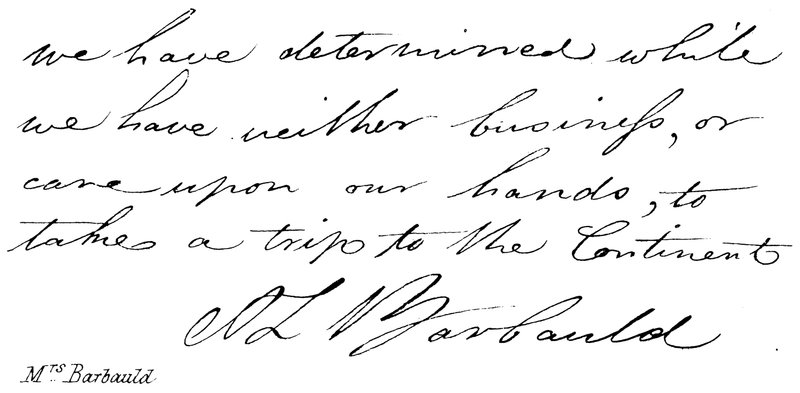 we have determined while
we have neither busineſs, or
care upon our hands, to
take a trip to the Continent
A L Barbauld
Mrs Barbauld